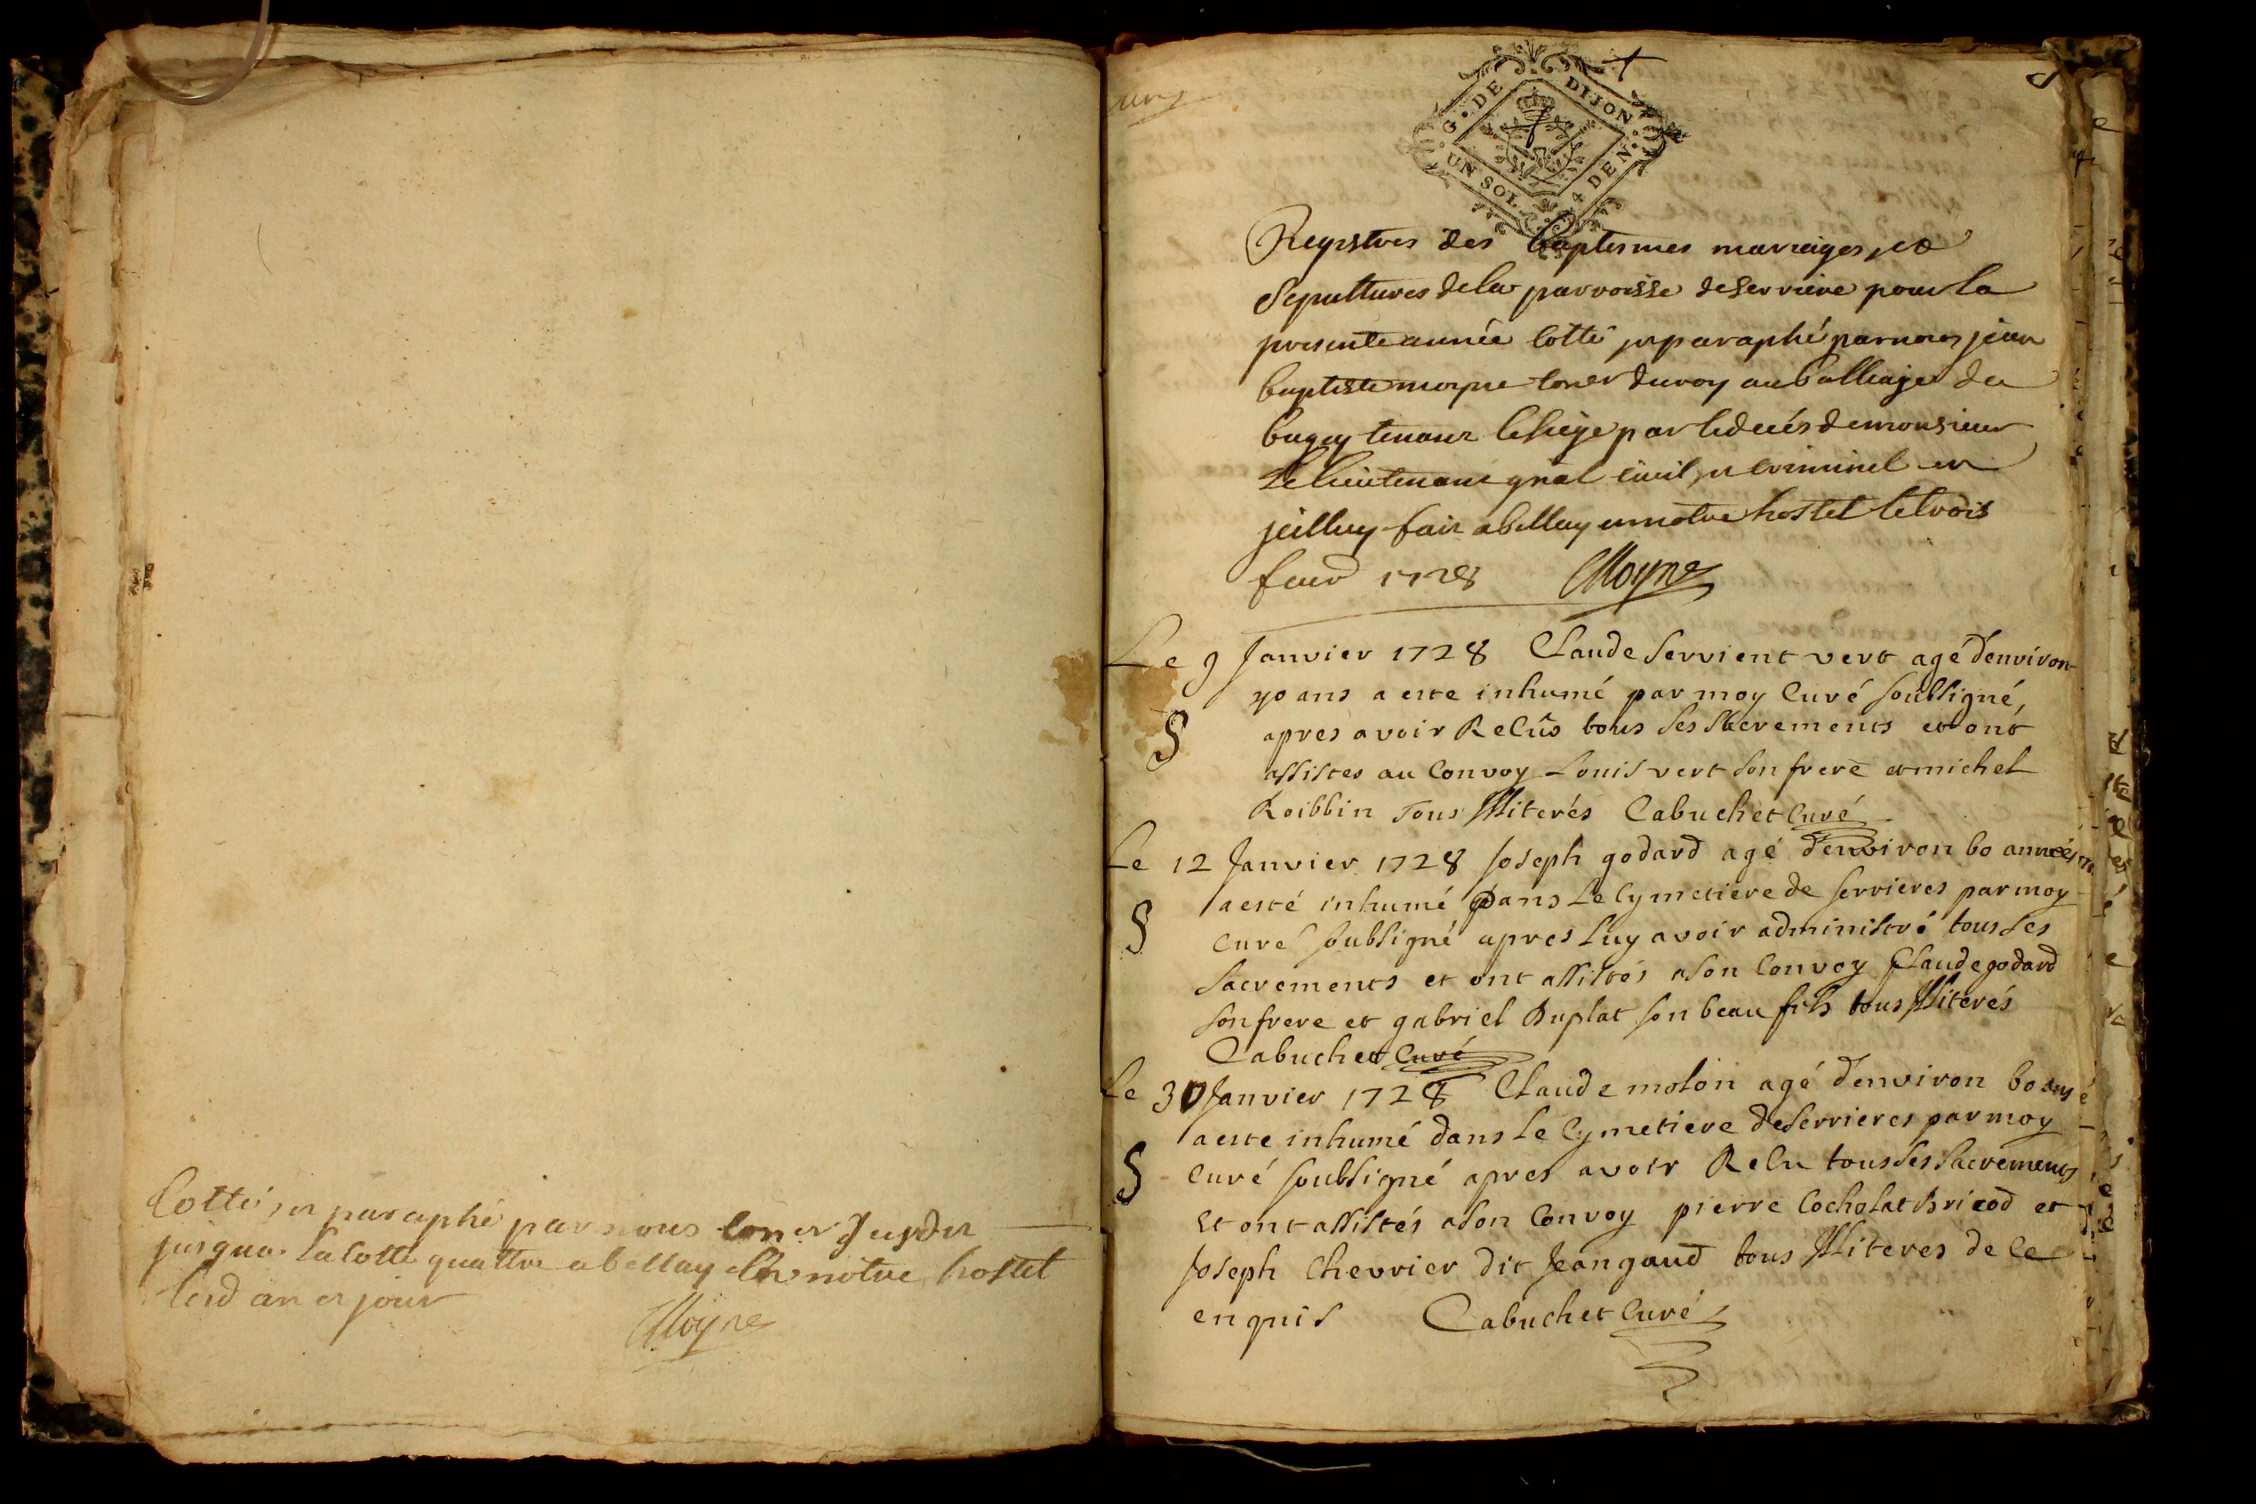 Cotté, et paraphé par nous coner susdit
jusqua la cotte quattre a bellay en notre hostel
lesd an et jour
Moyne
G. DE DIJON
UN SOL 4 DEN.
Registres des baptismes mariages, et
sepultures de la parroisse de serriere pour la
presente année cotté et paraphé par nous jean
baptiste moyne coner du roy au balliage du
bugey tenant le siege par le decés de monsieur
le lieutenant gnal civil, et criminel en
jcelluy fait a bellay en notre hostel le trois
janv 1728 Moyne
Le 9 Janvier 1728 Claude Servient vert agé d'environ
70 ans a este inhumé par moy Curé soubsigné,
apres avoir Recûs tous ses sacrements et ont
assistes au Convoy Louis vert son frere et michel
Roibbin Tous Illiterés Cabuchet Curé
Le 12 Janvier 1728 Joseph godard agé d'environ 60 années
a esté inhumé dans le Cymetiere de serrieres par moy
Curé soubsigné apres luy avoir administré tous ses
sacrements et ont assistés a son Convoy Claude godard
son frere et gabriel Duplat son beau fils tous Illiterés
Cabuchet Curé
Le 30 Janvier 1728 Claude molon agé d'environ 60 ans
a este inhumé dans le Cymetiere de serrieres par moy
Curé soubsigné apres avoir Recu tous ses sacrements
et ont assistés a son Convoy pierre Cocholat Bricod et
Joseph Chevrier dit Jeangaud tous Illiteres de ce
enquis Cabuchet Curé